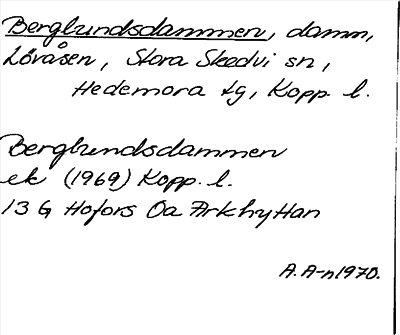 Berglundsdammen, damm,
Lövåsen, Stora Skedvi sn,
Hedemora tg, Kopp. l.
Berglundsdammen
ek (1969) Kopp. l.
13 G Hofors Oa ArkhyHan
A. A-n 1970.